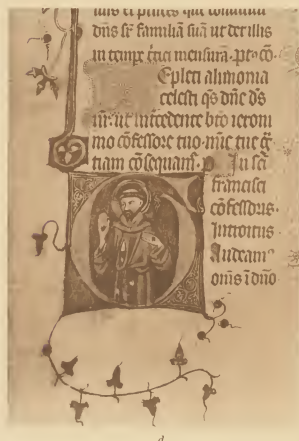 dñs sr̃ familiã suã ut det illis
in tempe t̃tici mensurã. p̃t cõ.
Epleti alimonia
celesti q̃s dñe ds̃
nr̃. ut intercedente bto ieroni
mo cõfessore tuo. mie tue gr̃
tiam cõsequam᷑. In sc̃i
francisci
cõfessoris.
Introitus
Audeam᷑
om̃s i dño
d